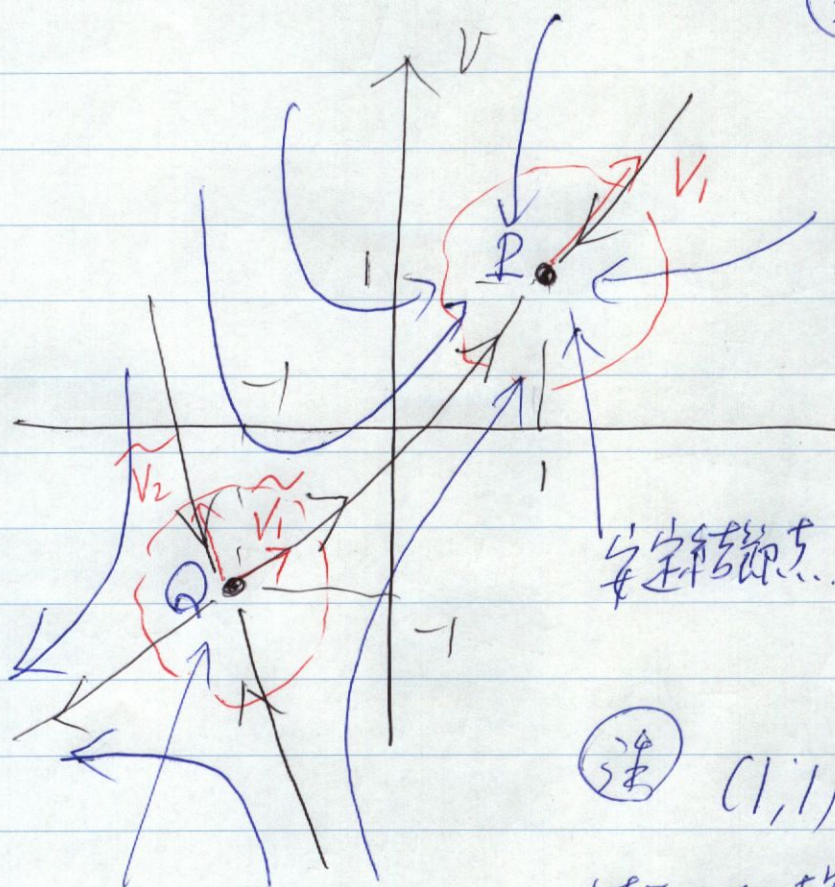 V
V₁
P
1
-1
1
Ṽ₂
Ṽ₁
Q
-1
安定結節点
注 (1,1)